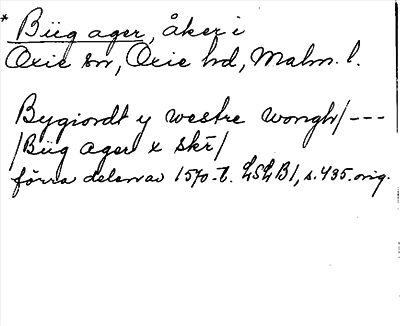 * Büg ager, åker i
Oxie sn, Oxie hd, Malm. l.
Bygiordt y westre wongh/---
/Büg ager x skr/
förra delen av 1570-t. LSLB1, s. 435. orig.